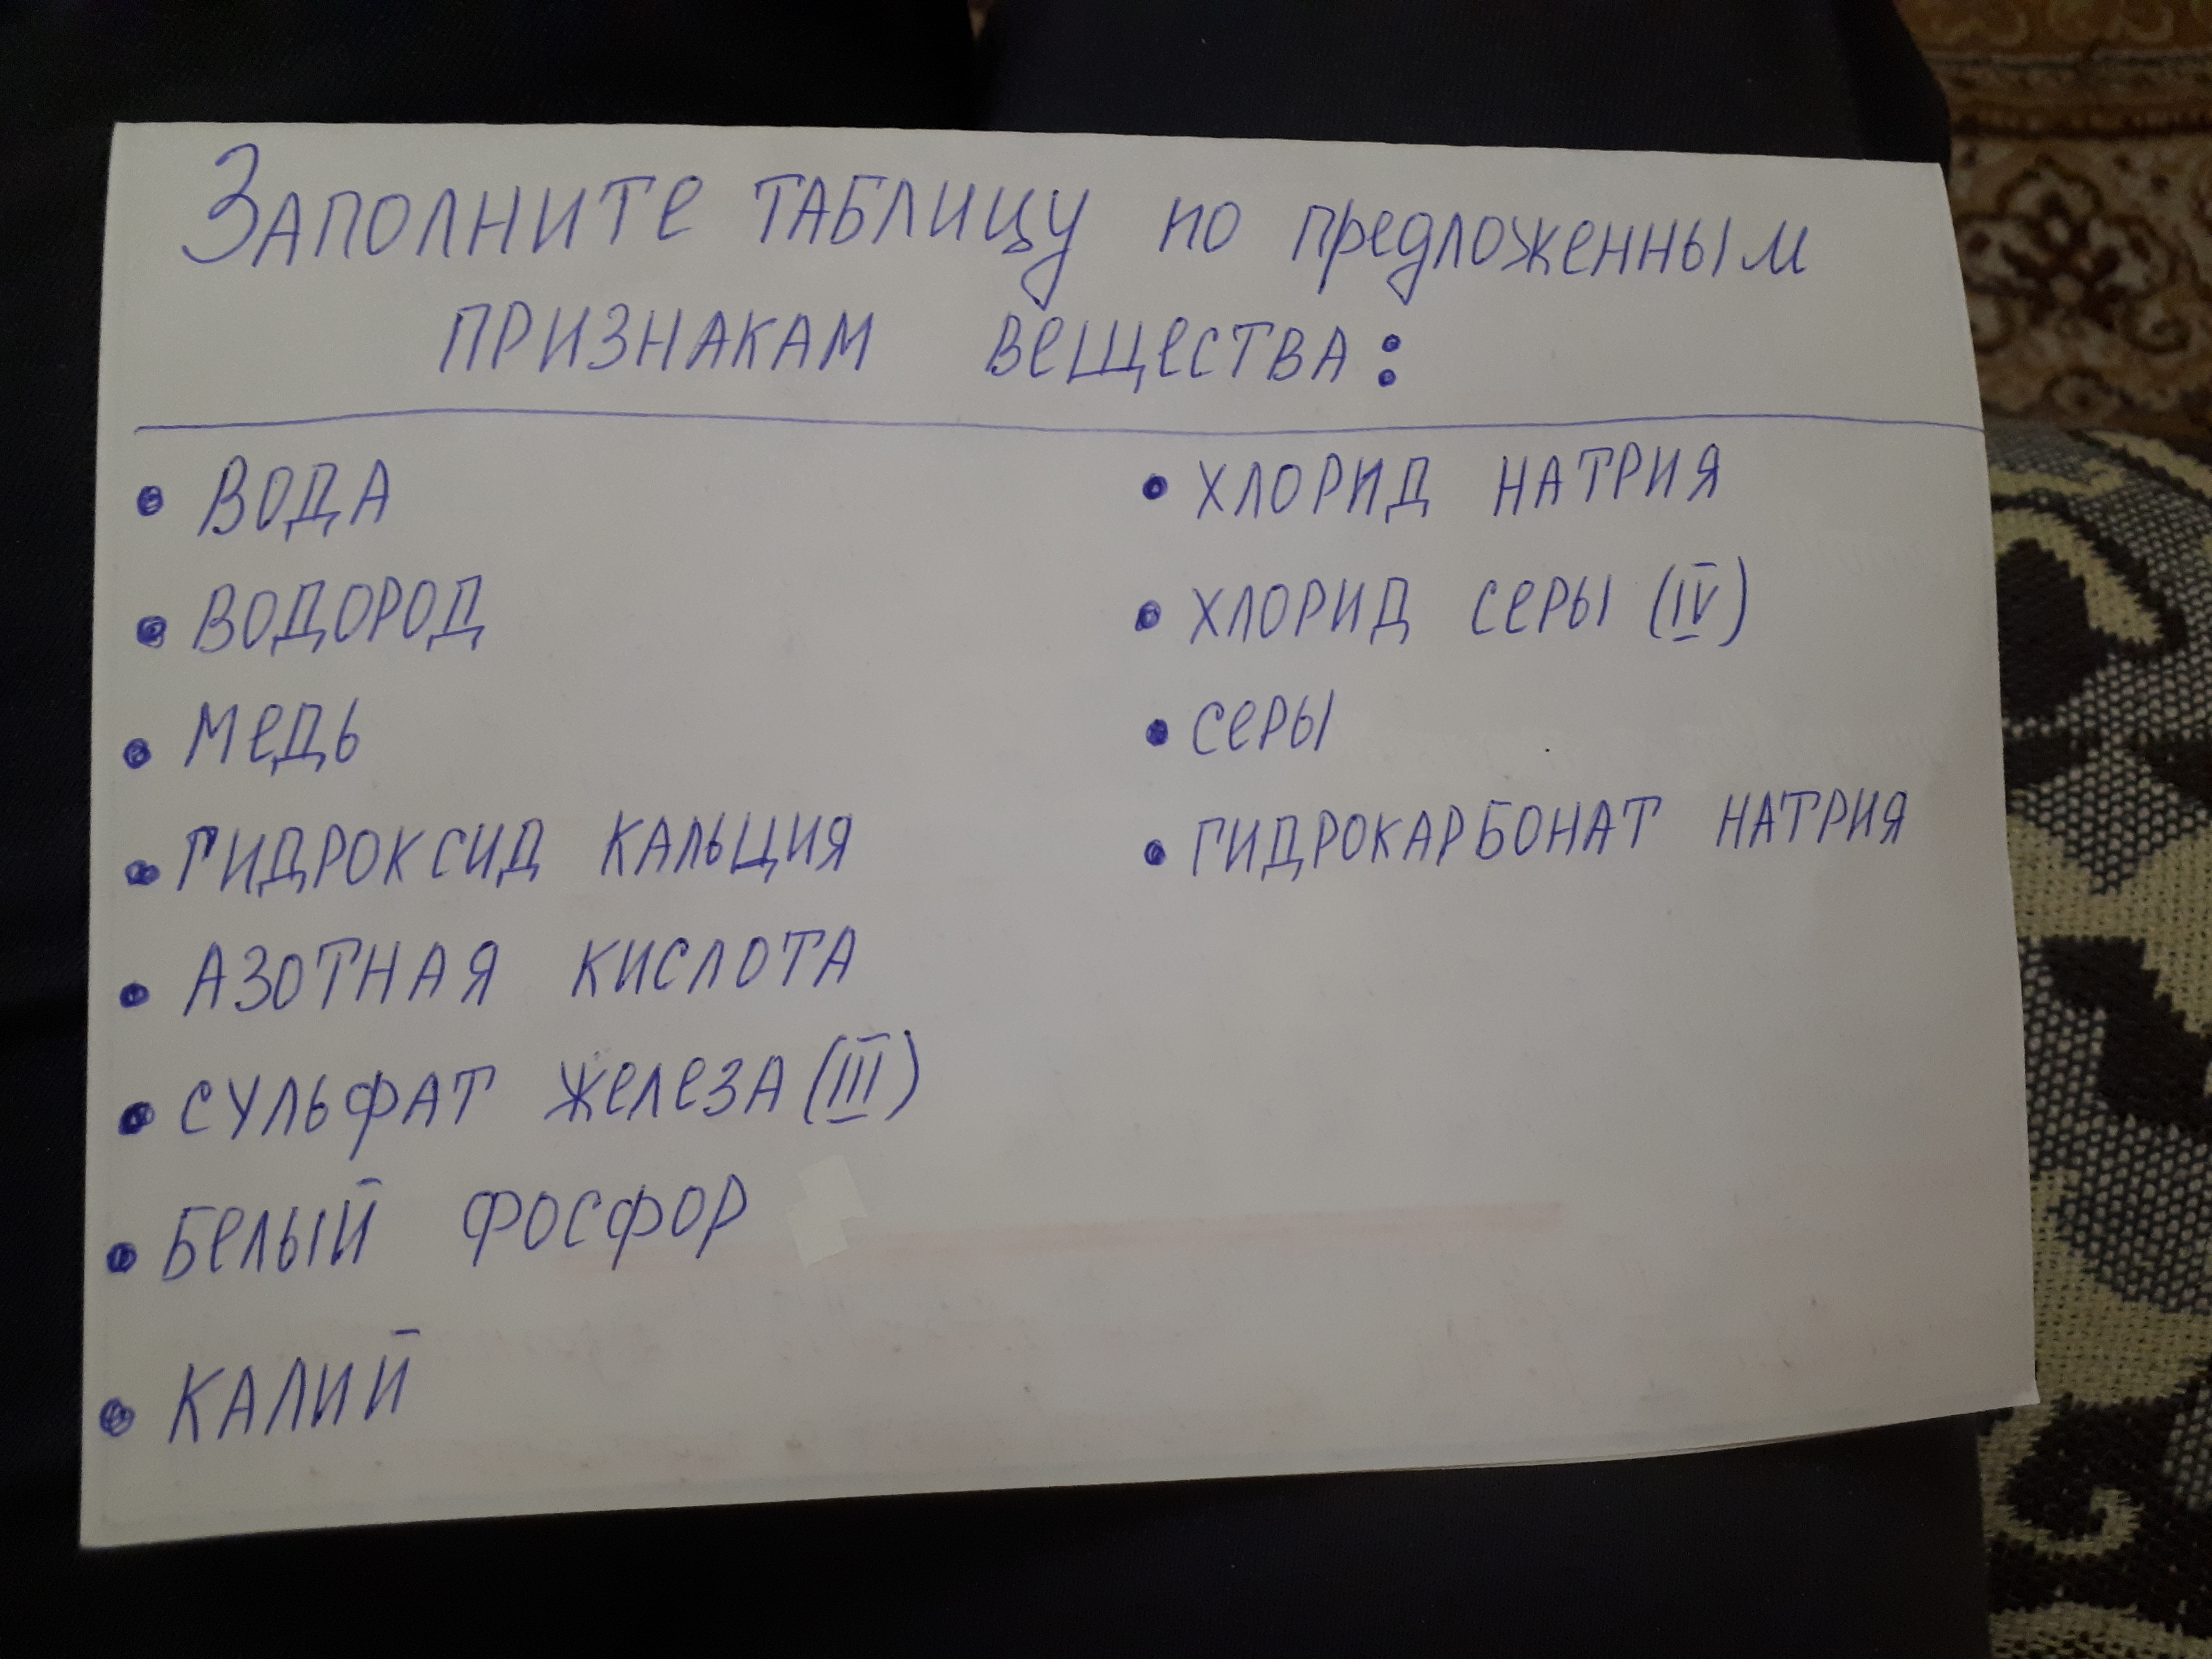 Заполните таблицу по предложенным
признакам вещества:
• вода
• водород
• медь
• гидроксид кальция
• азотная кислота
• сульфат железа (III)
• белый фосфор
• калий
• хлорид натрия
• хлорид серы (IV)
• серы
• гидрокарбонат натрия